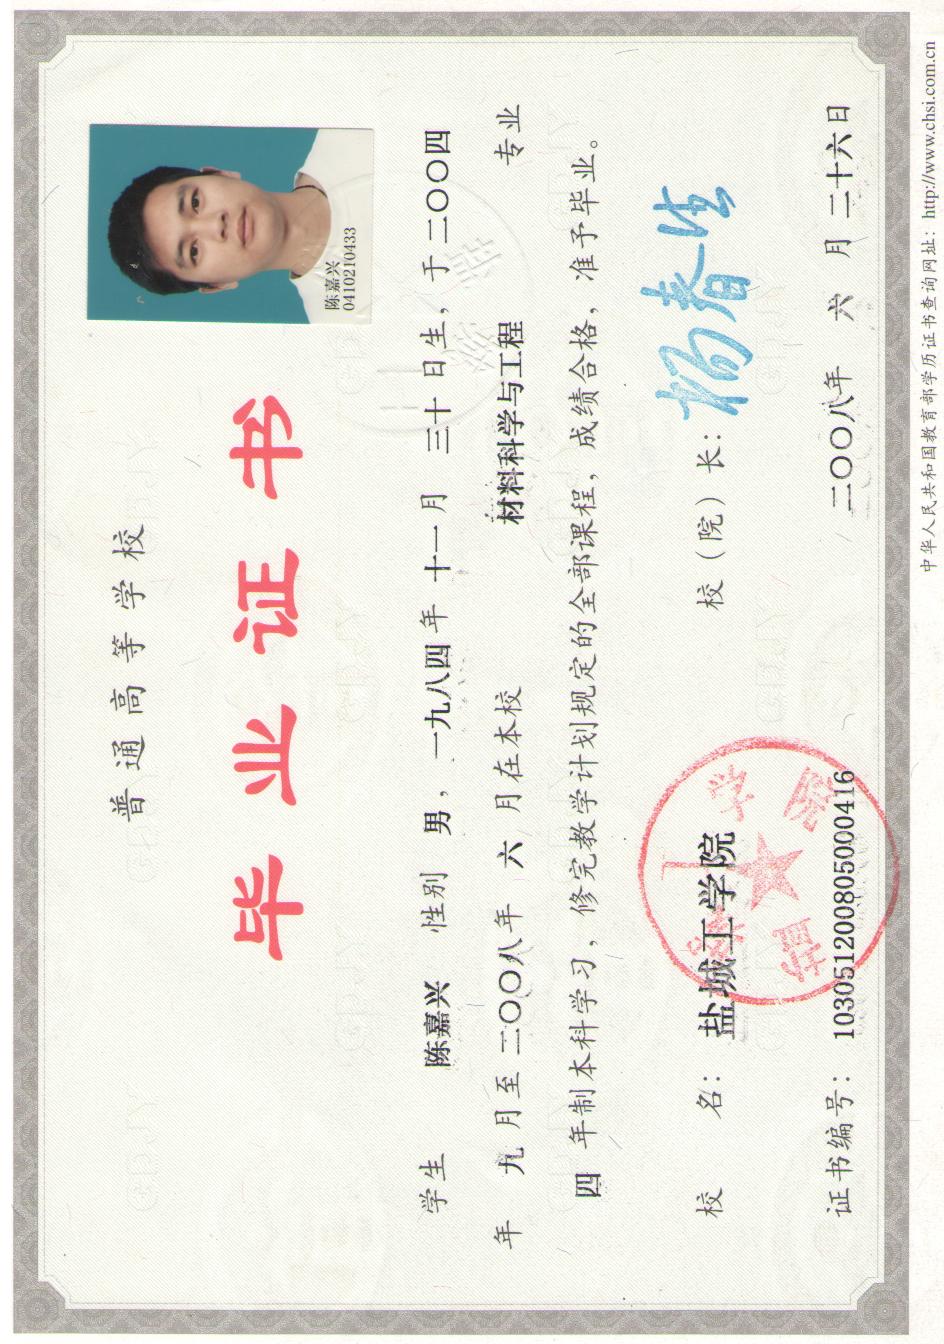 普通高等学校
毕业证书
陈嘉兴
0410210433
学生 陈嘉兴 性别 男，一九八四年 十一月 三十 日生，于二〇〇四
年 九 月至二〇〇八年 六 月在本校 材料科学与工程 专业
四 年制本科学习，修完教学计划规定的全部课程，成绩合格，准予毕业。
校 名：盐城工学院 校（院）长：杨春生
盐城工学院
证书编号：103051200805000416 二〇〇八年 六 月 二十六日
中华人民共和国教育部学历证书查询网址：http://www.chsi.com.cn